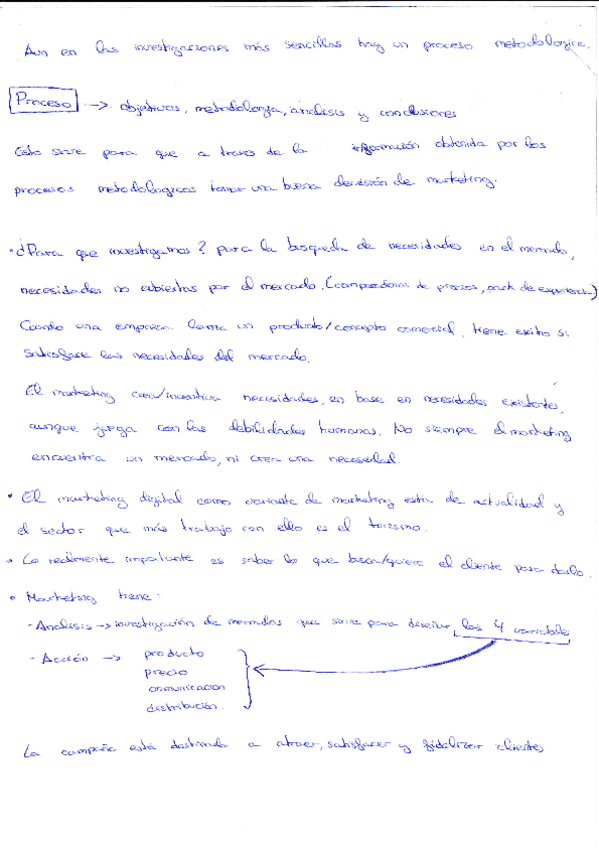 Aun en las investigaciones más sencillas hay un proceso metodologico.
Proceso -> objetivos, metodología, análisis y conclusiones
Esto sirve para que a traves de la información obtenida por los
procesos metodologicos tomar una buena decisión de marketing.
• ¿Para que investigamos? para la busqueda de necesidades en el mercado,
necesidades no cubiertas por el mercado. (compradores de precios, pack de experiencia)
Cuando una empresa lanza un producto/concepto comercial, tiene exito si
satisface las necesidades del mercado.
El marketing crea/incentiva necesidades, en base en necesidades existentes,
aunque juega con las debilidades humanas. No siempre el marketing
encuentra un mercado, ni crea una necesidad.
• El marketing digital como variante de marketing esta de actualidad y
el sector que más trabajo con ello es el turismo.
• Lo realmente importante es saber lo que busca/quiere el cliente para darlo.
• Marketing tiene:
- Analisis -> investigación de mercados que sirve para diseñar las 4 variables
- Acción -> producto
precio
comunicacion
distribución.
La campaña está destinada a atraer, satisfacer y fidelizar clientes